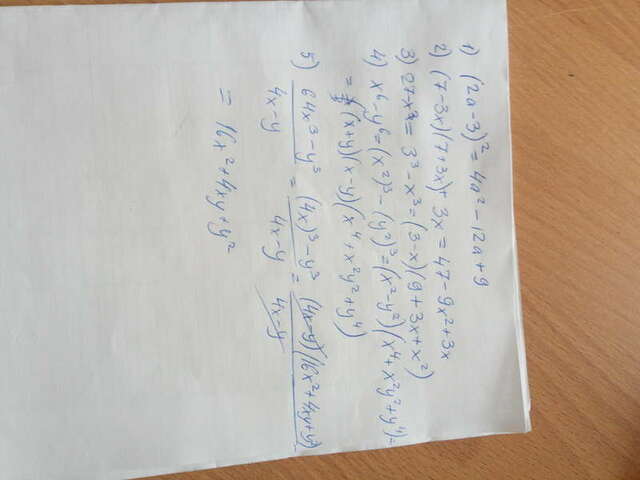 1) (2a-3)² = 4a² - 12a + 9
2) (7-3x)(7+3x)+3x = 47-9x²+3x
3) 27-x³ = 3³-x³ = (3-x)(9+3x+x²)
4) x⁶-y⁶ = (x²)³-(y²)³ = (x²-y²)(x⁴+x²y²+y⁴) =
= (x+y)(x-y)(x⁴+x²y²+y⁴)
5) (64x³-y³)/(4x-y) = ((4x)³-y³)/(4x-y) = ((4x-y)(16x²+4xy+y²))/(4x-y)
= 16x²+4xy+y²